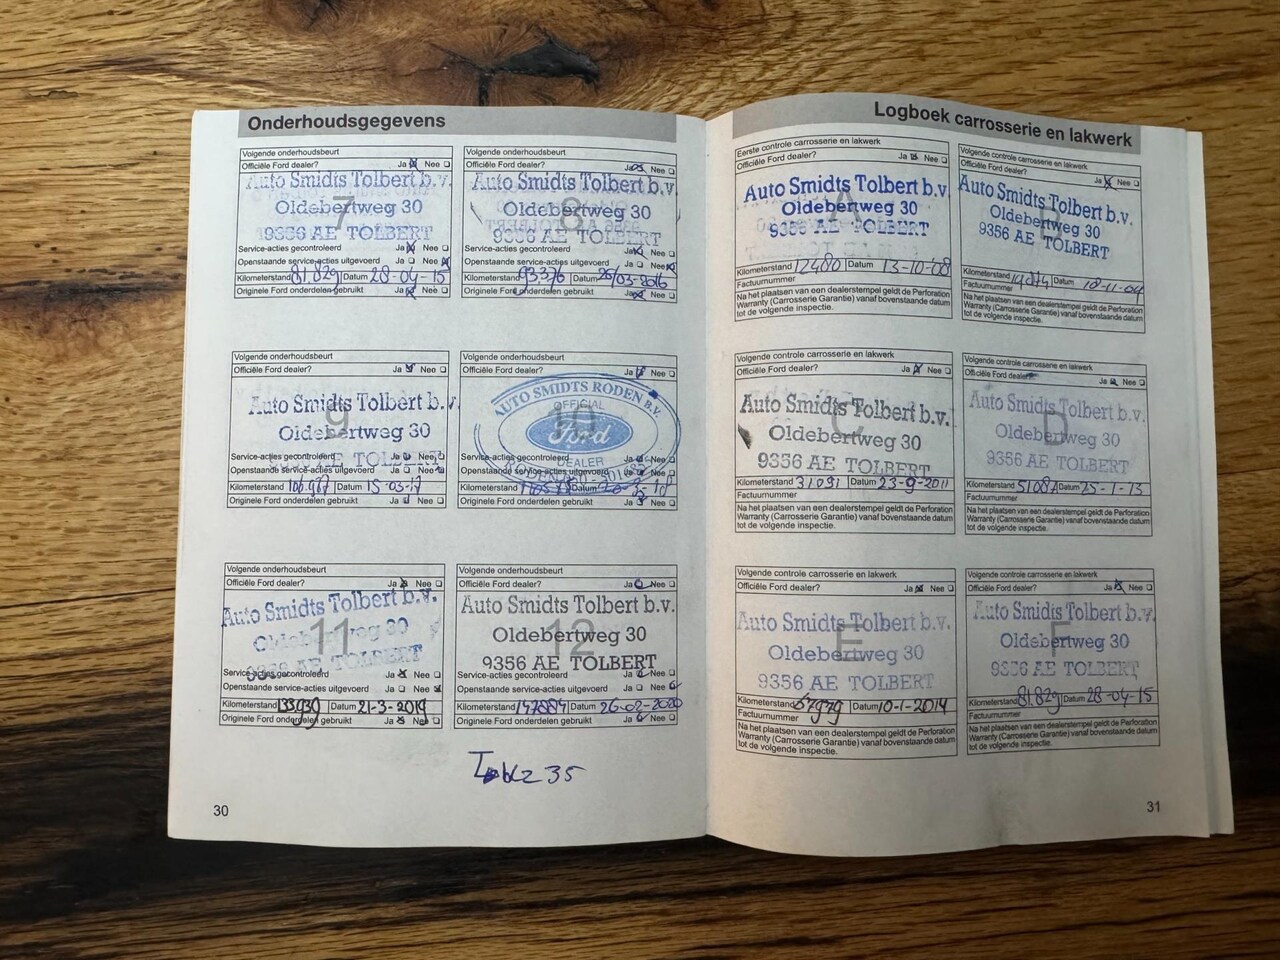 Onderhoudsgegevens
Volgende onderhoudsbeurt
Officiële Ford dealer? Ja Nee
7
Auto Smidts Tolbert b.v.
Oldebertweg 30
9356 AE TOLBERT
Service-acties gecontroleerd Ja Nee
Openstaande service-acties uitgevoerd Ja Nee
Kilometerstand 81.829 Datum 28-04-15
Originele Ford onderdelen gebruikt Ja Nee
Volgende onderhoudsbeurt
Officiële Ford dealer? Ja Nee
8
Auto Smidts Tolbert b.v.
Oldebertweg 30
9356 AE TOLBERT
Service-acties gecontroleerd Ja Nee
Openstaande service-acties uitgevoerd Ja Nee
Kilometerstand 93.376 Datum 25/03-2016
Originele Ford onderdelen gebruikt Ja Nee
Volgende onderhoudsbeurt
Officiële Ford dealer? Ja Nee
9
Auto Smidts Tolbert b.v.
Oldebertweg 30
9356 AE TOLBERT
Service-acties gecontroleerd Ja Nee
Openstaande service-acties uitgevoerd Ja Nee
Kilometerstand Datum 15-03-17
Originele Ford onderdelen gebruikt Ja Nee
Volgende onderhoudsbeurt
Officiële Ford dealer? Ja Nee
10
AUTO SMIDTS RODEN B.V.
OFFICIAL
Ford
DEALER
Service-acties gecontroleerd Ja Nee
Openstaande service-acties uitgevoerd Ja Nee
Kilometerstand Datum
Originele Ford onderdelen gebruikt Ja Nee
Volgende onderhoudsbeurt
Officiële Ford dealer? Ja Nee
11
Auto Smidts Tolbert b.v.
Oldebertweg 30
9356 AE TOLBERT
Service-acties gecontroleerd Ja Nee
Openstaande service-acties uitgevoerd Ja Nee
Kilometerstand 133939 Datum 21-3-2019
Originele Ford onderdelen gebruikt Ja Nee
Volgende onderhoudsbeurt
Officiële Ford dealer? Ja Nee
12
Auto Smidts Tolbert b.v.
Oldebertweg 30
9356 AE TOLBERT
Service-acties gecontroleerd Ja Nee
Openstaande service-acties uitgevoerd Ja Nee
Kilometerstand 147884 Datum 26-02-2020
Originele Ford onderdelen gebruikt Ja Nee
35
30
Logboek carrosserie en lakwerk
Eerste controle carrosserie en lakwerk
Officiële Ford dealer? Ja Nee
A
Auto Smidts Tolbert b.v.
Oldebertweg 30
9356 AE TOLBERT
Kilometerstand 12480 Datum 13-10-'08
Factuurnummer
Na het plaatsen van een dealerstempel geldt de Perforation
Warranty (Carrosserie Garantie) vanaf bovenstaande datum
tot de volgende inspectie.
Volgende controle carrosserie en lakwerk
Ja Nee
B
Auto Smidts Tolbert b.v.
Oldebertweg 30
9356 AE TOLBERT
Kilometerstand Datum 10-11-09
Factuurnummer
Na het plaatsen van een dealerstempel geldt de Perforation
Warranty (Carrosserie Garantie) vanaf bovenstaande datum
tot de volgende inspectie.
Volgende controle carrosserie en lakwerk
Officiële Ford dealer? Ja Nee
C
Auto Smidts Tolbert b.v.
Oldebertweg 30
9356 AE TOLBERT
Kilometerstand 31091 Datum 23-9-2011
Factuurnummer
Na het plaatsen van een dealerstempel geldt de Perforation
Warranty (Carrosserie Garantie) vanaf bovenstaande datum
tot de volgende inspectie.
Volgende controle carrosserie en lakwerk
Officiële Ford dealer? Ja Nee
D
Auto Smidts Tolbert b.v.
Oldebertweg 30
9356 AE TOLBERT
Kilometerstand 51087 Datum 25-1-13
Factuurnummer
Na het plaatsen van een dealerstempel geldt de Perforation
Warranty (Carrosserie Garantie) vanaf bovenstaande datum
tot de volgende inspectie.
Volgende controle carrosserie en lakwerk
Officiële Ford dealer? Ja Nee
E
Auto Smidts Tolbert b.v.
Oldebertweg 30
9356 AE TOLBERT
Kilometerstand 67979 Datum 10-1-2014
Factuurnummer
Na het plaatsen van een dealerstempel geldt de Perforation
Warranty (Carrosserie Garantie) vanaf bovenstaande datum
tot de volgende inspectie.
Volgende controle carrosserie en lakwerk
Officiële Ford dealer? Ja Nee
F
Auto Smidts Tolbert b.v.
Oldebertweg 30
9356 AE TOLBERT
Kilometerstand 81.829 Datum 28-04-15
Factuurnummer
Na het plaatsen van een dealerstempel geldt de Perforation
Warranty (Carrosserie Garantie) vanaf bovenstaande datum
tot de volgende inspectie.
31